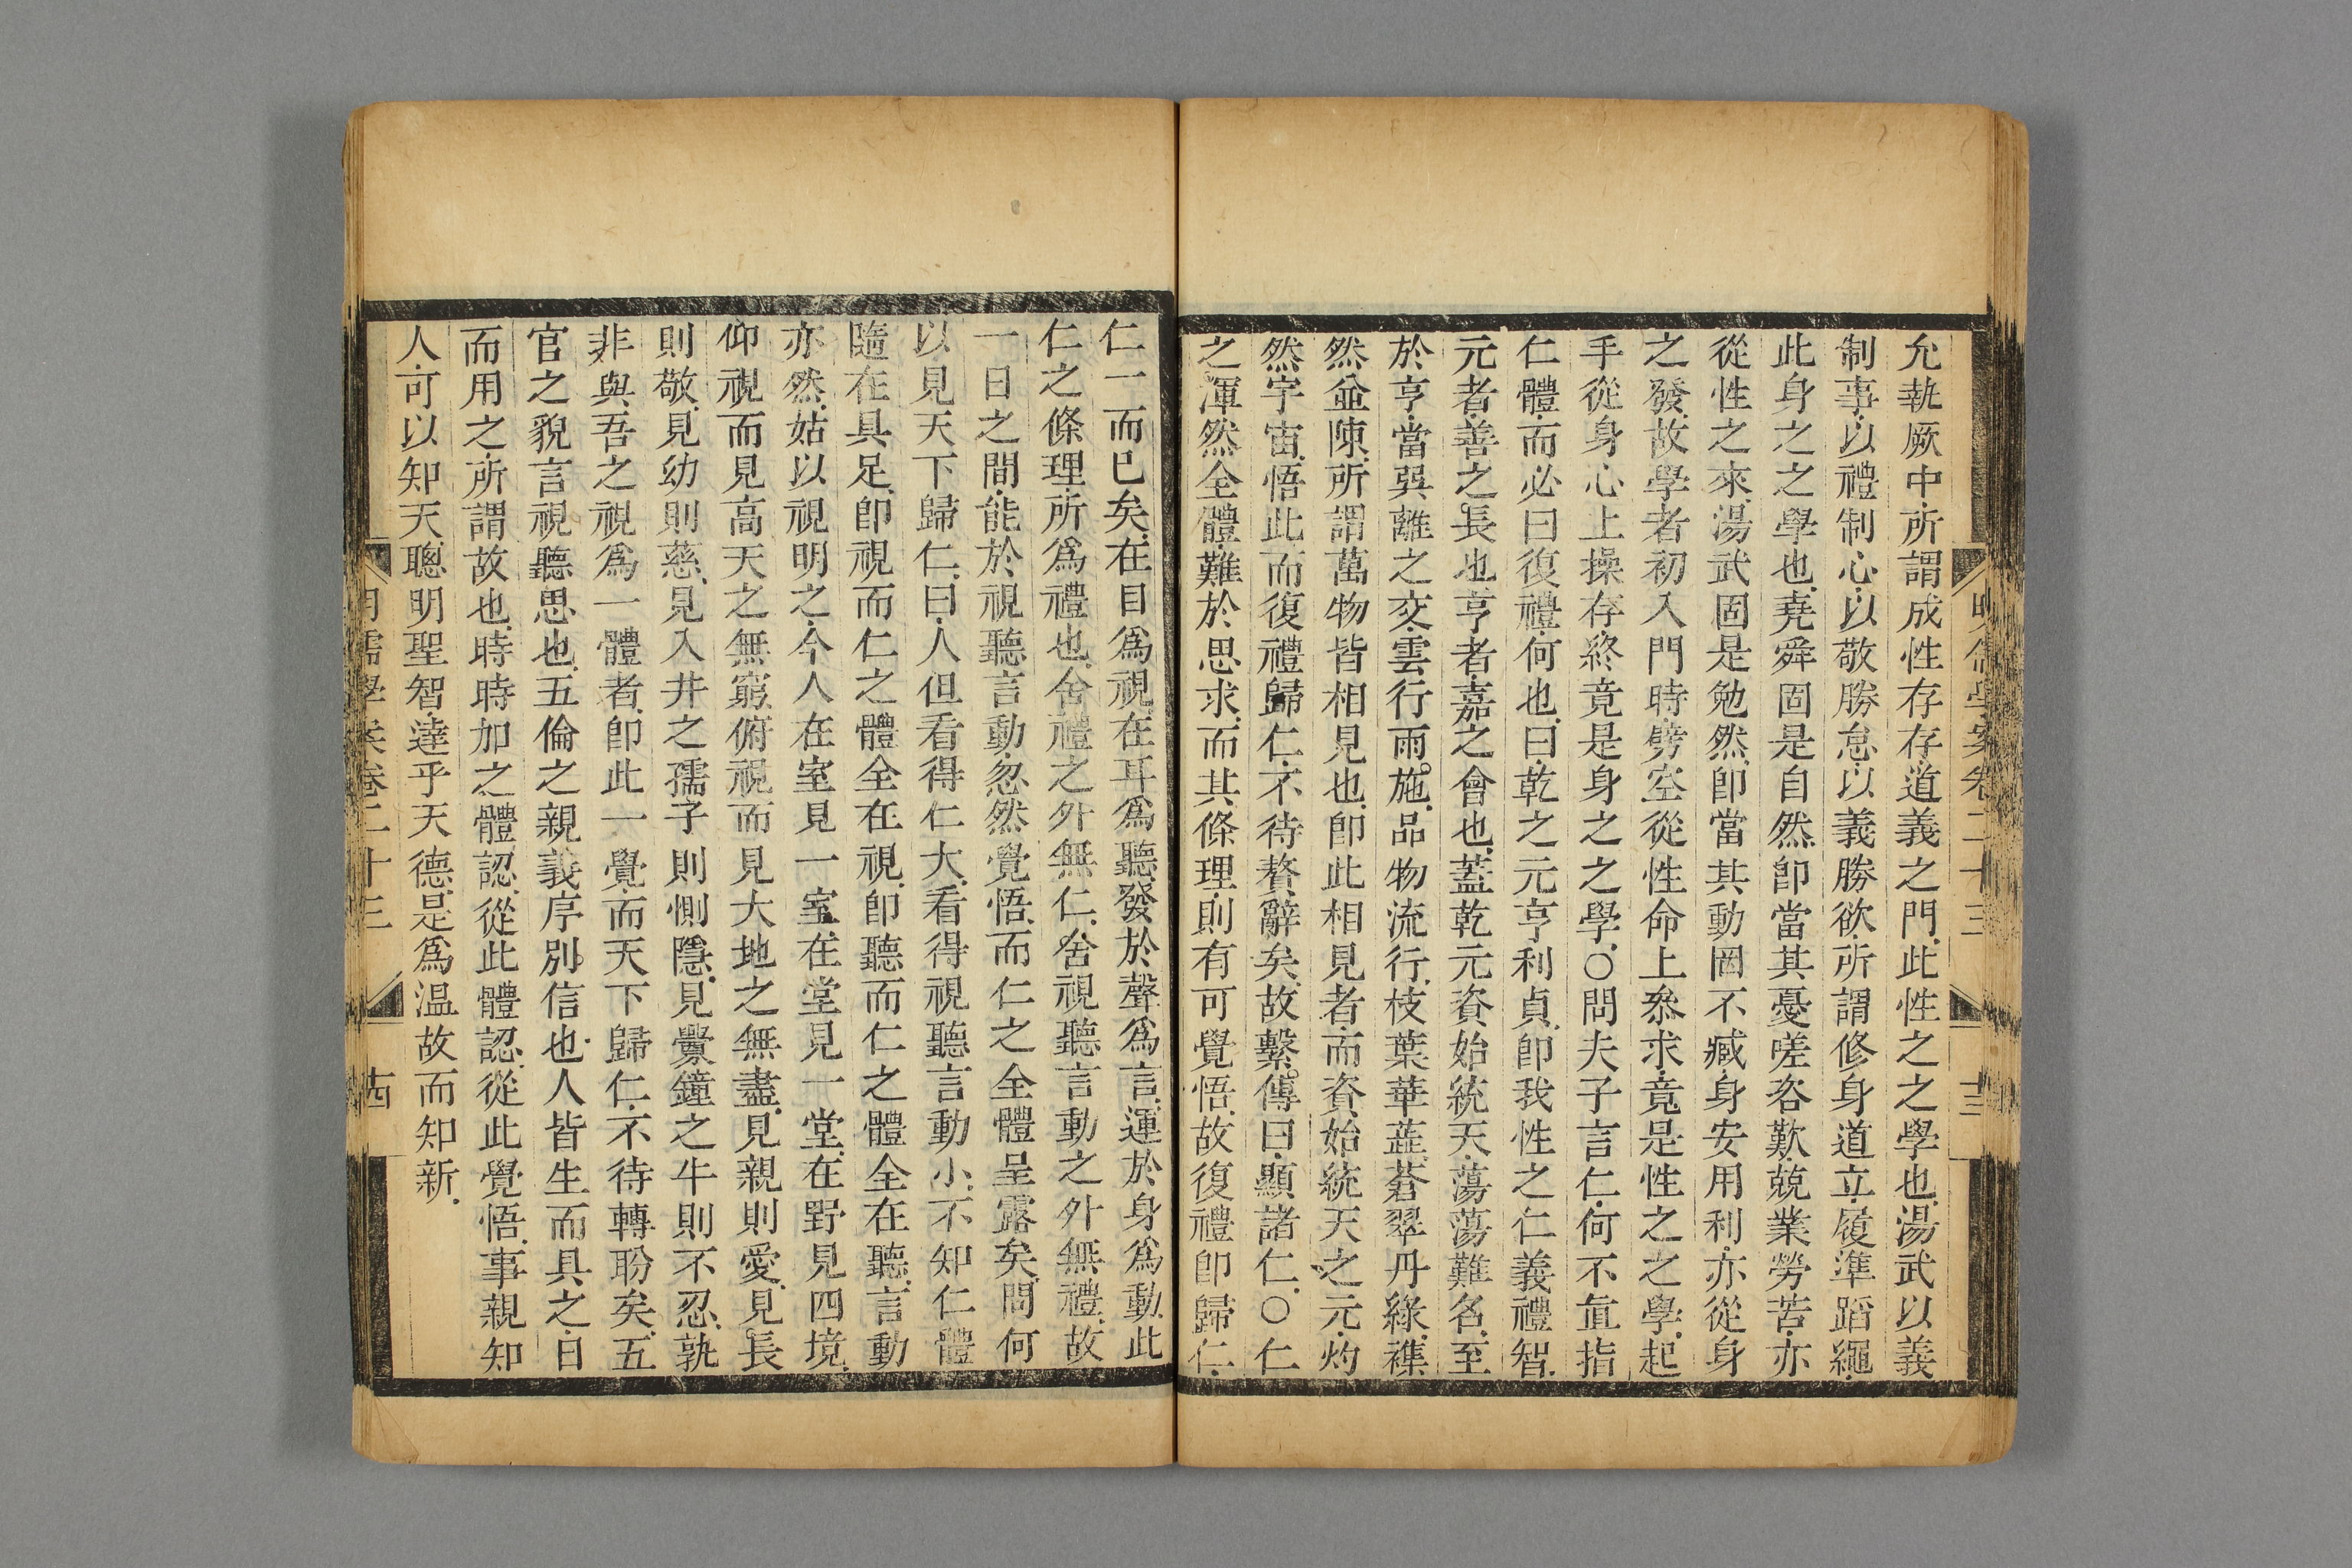 明儒學案卷二十三
十三
允執厥中.所謂成性存存.道義之門.此性之之學也.湯武以義
制事.以禮制心.以敬勝怠.以義勝欲.所謂修身道立.履準蹈繩.
此身之之學也.堯舜固是自然.卽當其憂嗟咨歎.兢業勞苦.亦
從性之來.湯武固是勉然.卽當其動罔不臧.身安用利.亦從身
之發.故學者初入門時.劈空從性命上叅求.竟是性之之學.起
手從身心上操存.終竟是身之之學.○問夫子言仁.何不直指
仁體.而必曰復禮.何也.曰.乾之元亨利貞.卽我性之仁義禮智.
元者.善之長也.亨者.嘉之會也.蓋乾元資始統天.蕩蕩難名.至
於亨.當巽離之交.雲行雨施.品物流行.枝葉華蕋.蒼翠丹綠.襍
然並陳.所謂萬物皆相見也.卽此相見者.而資始統天之元.灼
然宇宙.悟此而復禮歸仁.不待贅辭矣.故繫傳曰.顯諸仁.○仁
之渾然全體.難於思求.而其條理.則有可覺悟.故復禮卽歸仁.
仁一而已矣.在目爲視.在耳爲聽.發於聲爲言.運於身爲動.此
仁之條理.所爲禮也.舍禮之外無仁.舍視聽言動之外無禮.故
一日之間.能於視聽言動.忽然覺悟.而仁之全體呈露矣.問何
以見天下歸仁.曰.人但看得仁大.看得視聽言動小.不知仁體
隨在具足.卽視而仁之體全在視.卽聽而仁之體全在聽.言動
亦然.姑以視明之.今人在室見一室.在堂見一堂.在野見四境.
仰視而見高天之無窮.俯視而見大地之無盡.見親則愛.見長
則敬.見幼則慈.見入井之孺子則惻隱.見釁鐘之牛則不忍.孰
非與吾之視爲一體者.卽此一覺.而天下歸仁.不待轉盼矣.五
官之貌言視聽思也.五倫之親義序別信也.人皆生而具之.日
而用之.所謂故也.時時加之體認.從此體認.從此覺悟.事親知
人.可以知天.聰明聖智.達乎天德.是爲温故而知新.
明儒學案卷二十三
十四